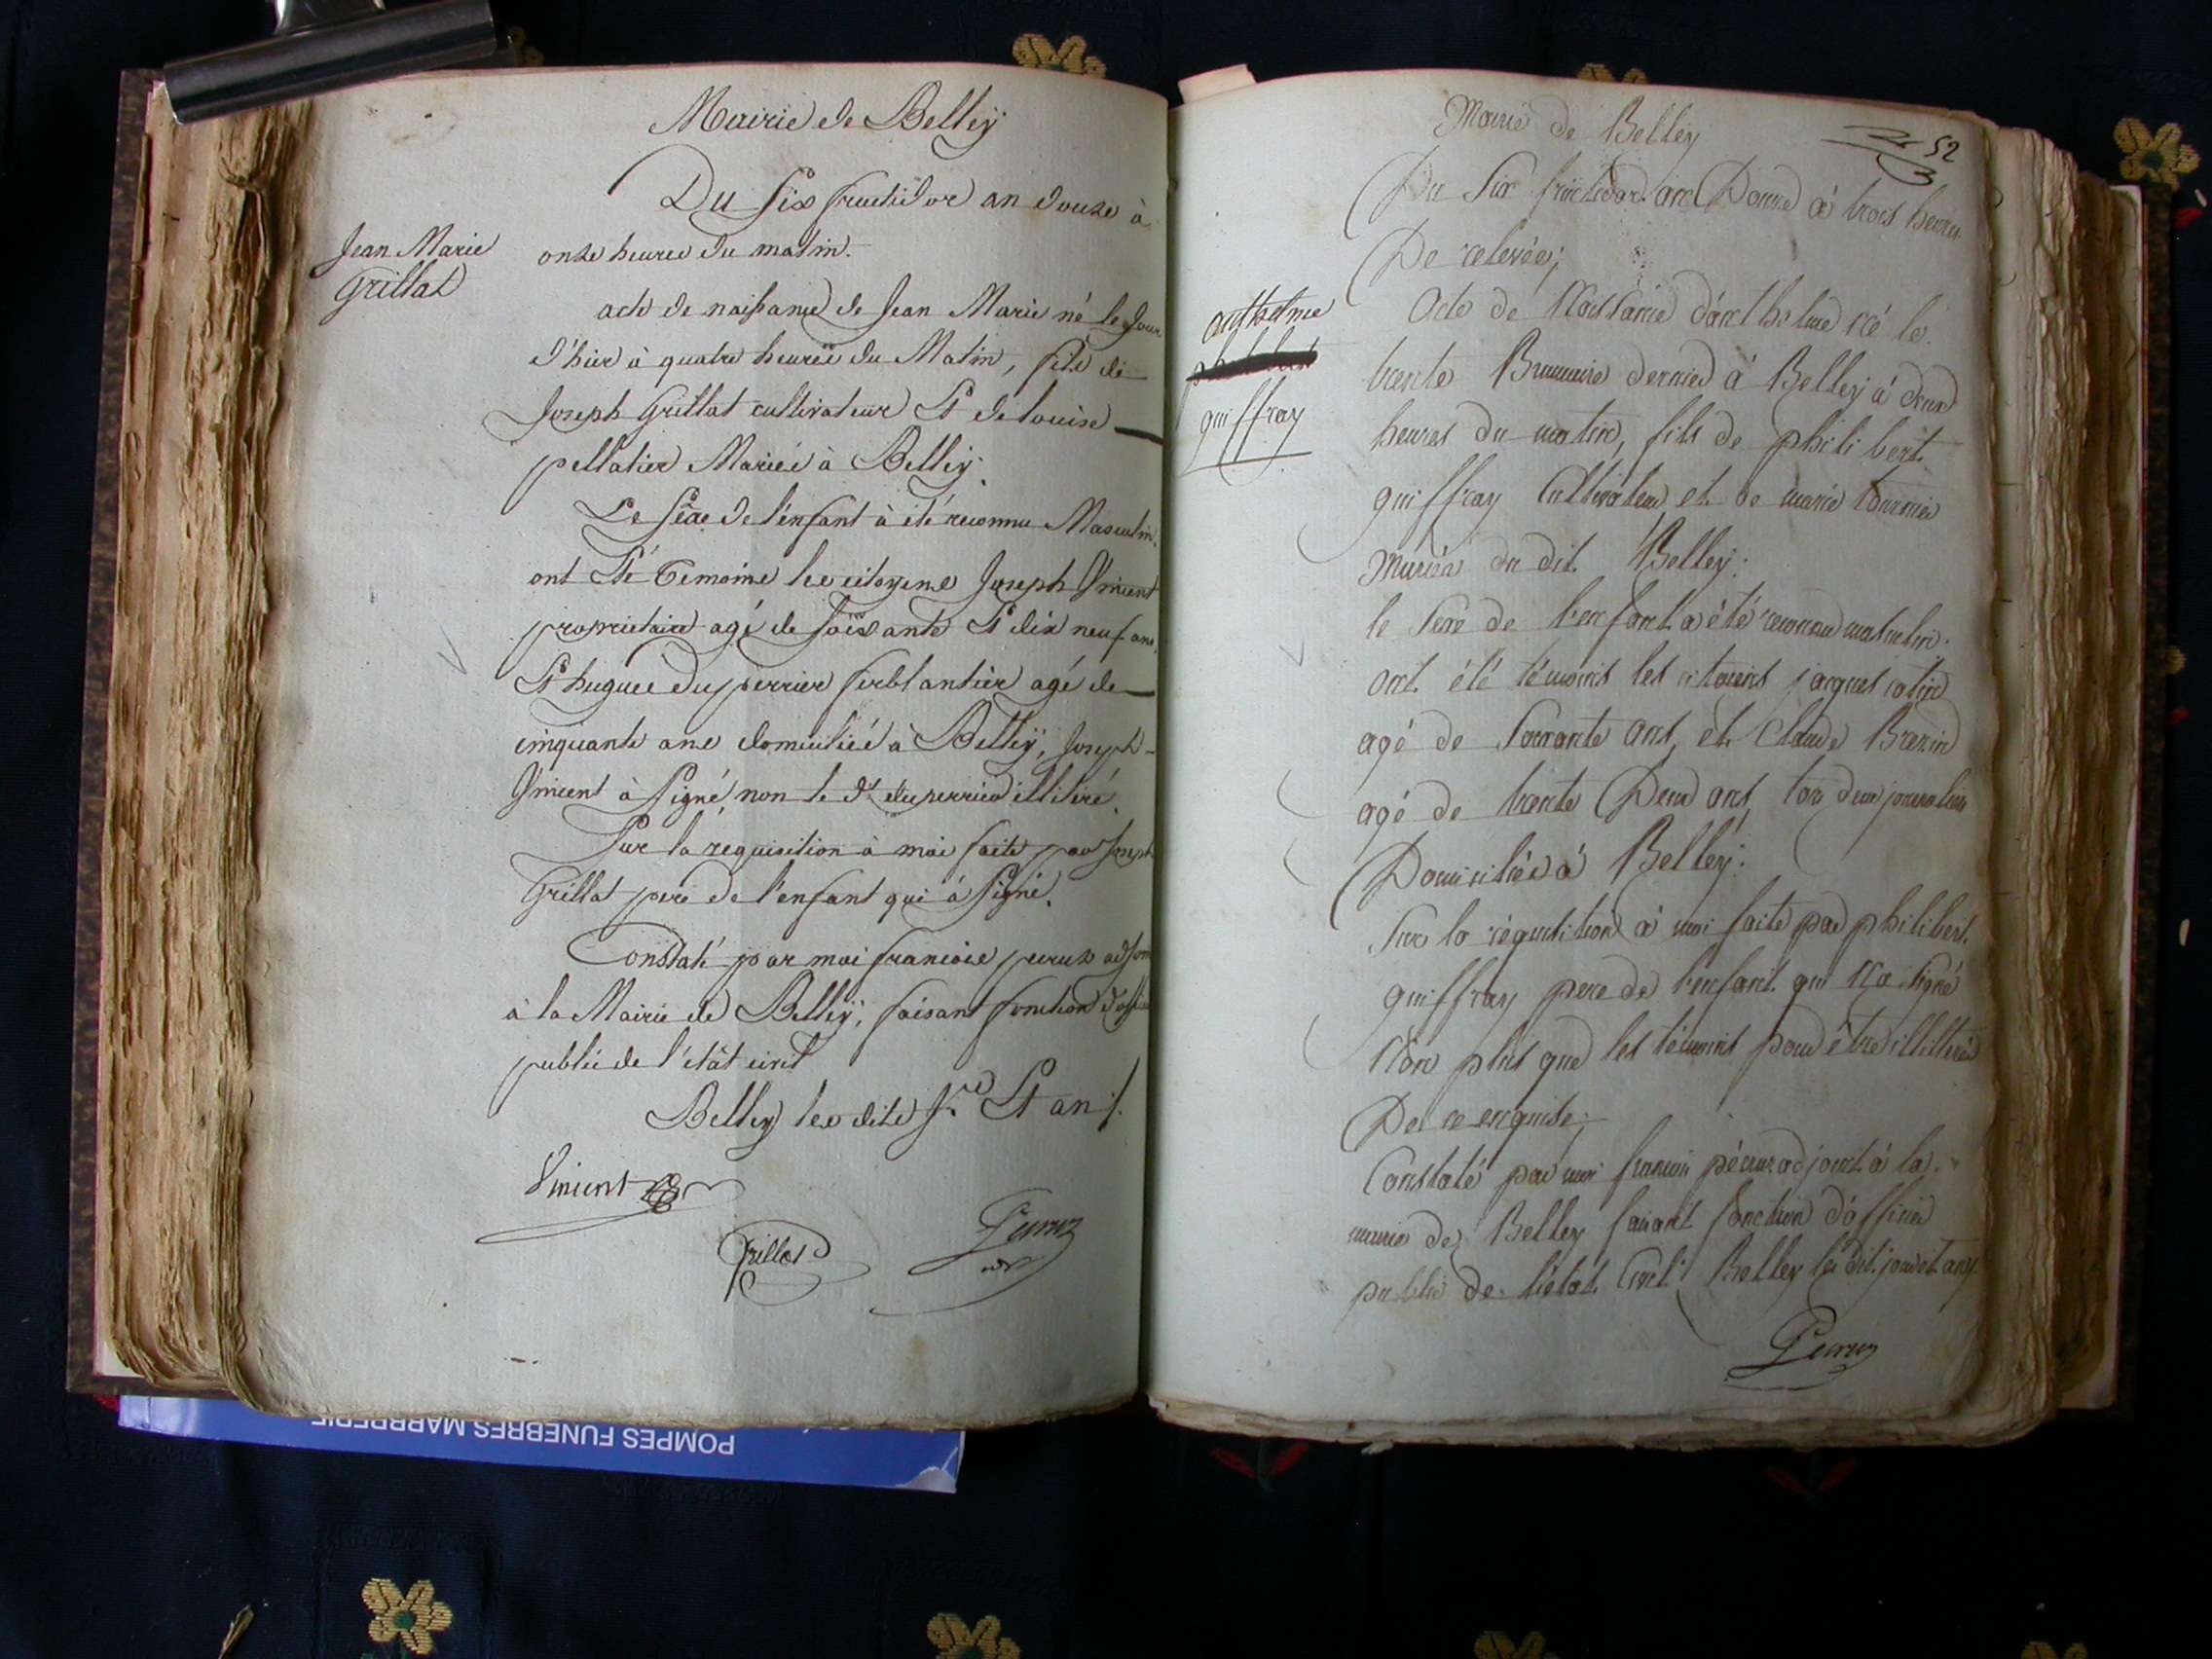 Mairie de Belley
Du six fructidor an douze à
onze heures du matin.
Jean Marie
Grillat
acte de naissance de Jean Marie né le jour
d'hier à quatre heures du Matin, fils de
Joseph Grillat cultivateur Et de louise
pellatier Mariés à Belley.
Le sexe de l'enfant à été reconnu Masculin.
ont Été Temoins les citoyens Joseph Vincent
proprietaire agé de soixante Et dix neuf ans,
Et hugues duperrier ferblantier agé de
cinquante ans domiciliés à Belley, Joseph
Vincent à signé, non le dt duperrier illiteré.
Sur la réquisition à moi faite par Joseph
Grillat pere de l'enfant qui à signé.
Constaté par moi francois peruz adjoint
à la Mairie de Belley, faisant fonction d'officier
public de l'état civil
Belley les dits jr Et an ./.
Vincent
Grillat
Peruz
52
Mairie de Belley
Du Six fructidor an Douze à trois heures
De relevée;
anthelme
guiffray
Acte de Naissance d'anthelme né le
trente Brumaire dernier à Belley à deux
heures du matin, fils de philibert
guiffray Cultivateur et de marie tournier
Mariés du dit Belley.
le Sexe de l'enfant a été reconnu masculin.
ont été témoins les citoiens jacques cotin
agé de Soixante ans, et Claude Brezin
agé de trente Deux ans, tou deux journaliers
Domiciliés à Belley.
Sur la réquisition à moi faite par philibert
guiffray pere de l'enfant qui N'a signé
Non plus que les témoins pour être illitterés
De ce enquis;
Constaté par moi francois péruz adjoint à la
mairie de Belley faisant fonction d'officier
public de l'état Civil Belley les dit jour et an ./.
Peruz
POMPES FUNEBRES MARBRERIE